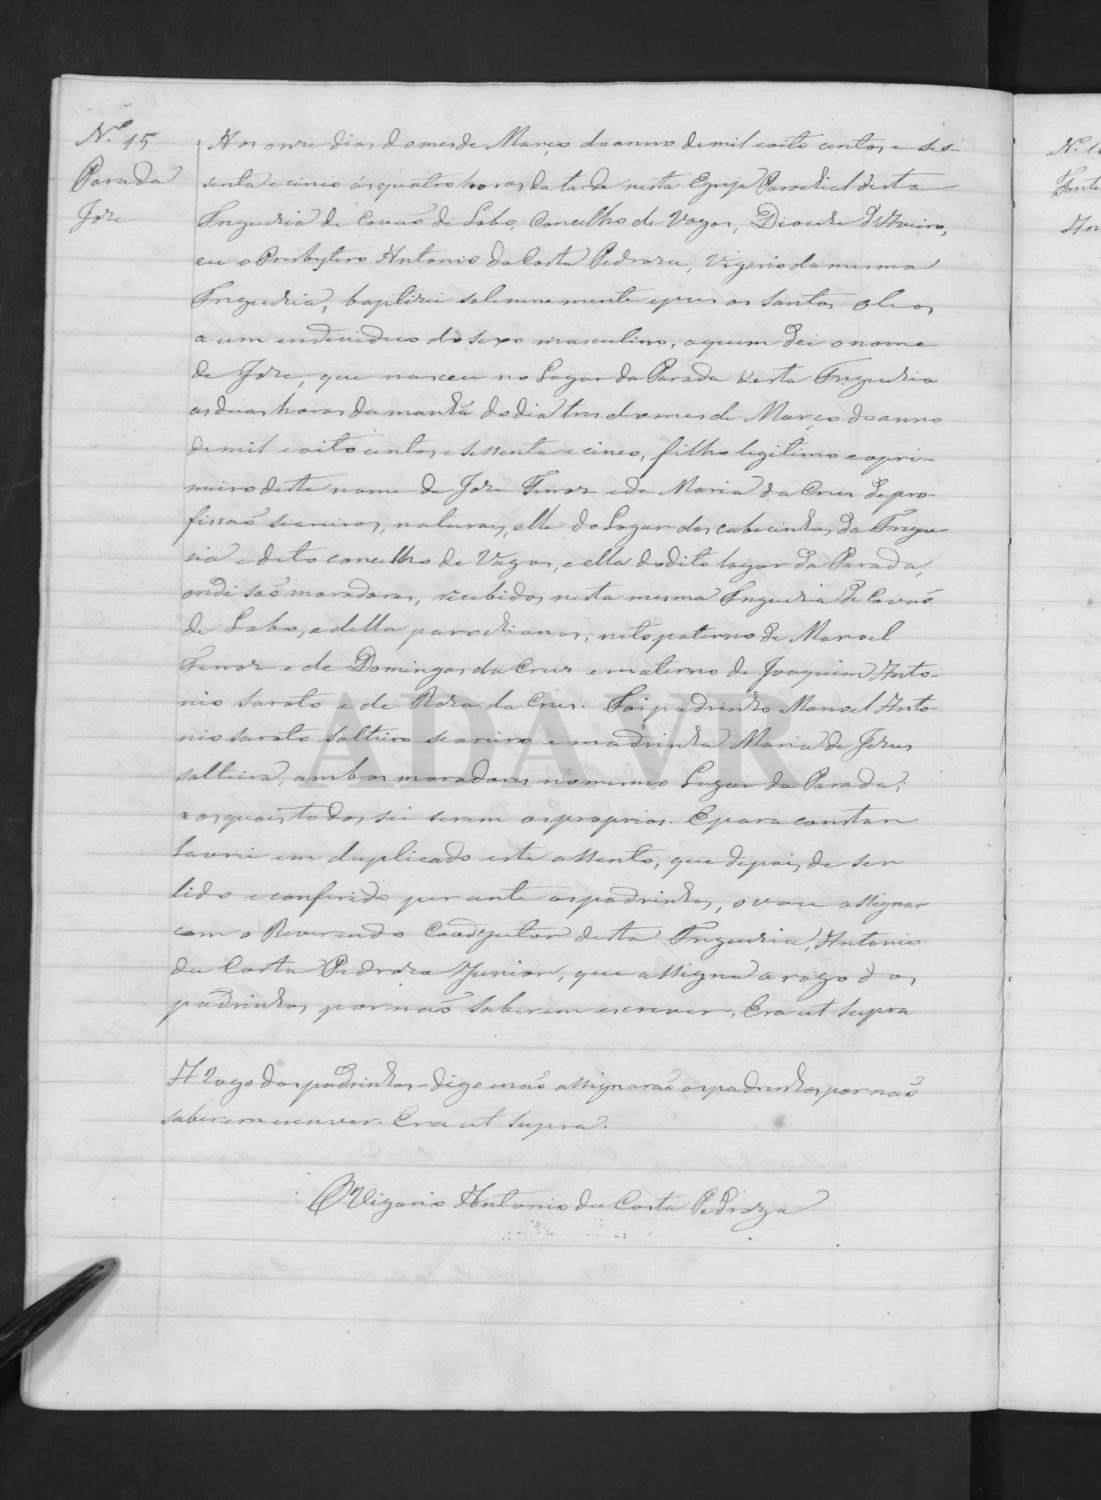 N.º 15
Parada
Joze
Aos onze dias do mes de Março do anno de mil e oito centos e ses-
senta e cinco ás quatro horas da tarde nesta Egreja Parochial desta
Freguezia de Covaõ de Lobo, Concelho de Vagos, Diocese d'Aveiro,
eu o Presbytero Antonio da Costa Pedroza, Vigario da mesma
Freguezia, baptizei solemnemente e puz os Santos oleos
a um individuo do sexo masculino, a quem dei o nome
de Joze, que nasceu no Lugar da Parada desta Freguezia
as duas horas da manhã do dia tres do mes de Março do anno
de mil e oito centos e sessenta e cinco, filho legitimo e o pri-
meiro deste nome de Joze e de Maria da Cruz de pro-
fissaõ seareiros, naturaes, elle do Lugar das cabecinhas da Fregue-
zia e dito concelho de Vagos, e ella do dito lugar da Parada,
onde saõ moradores, recebidos nesta mesma Freguezia de Covaõ
de Lobo, e della parochianos, neto paterno de Manoel
e de Domingas da Cruz e materno de Joaquim Anto-
nio Sarato e de Roza da Cruz. Foi padrinho Manoel Anto-
nio Sarato solteiro seareiro e madrinha Maria de Jezus
solteira, ambos moradores no mesmo Lugar da Parada,
os quaes todos sei serem os proprios. E para constar
lavrei em duplicado este assento, que depois de ser
lido e conferido perante os padrinhos, o vou assignar
com o Reverendo Coadjutor desta Freguezia, Antonio
da Costa Pedroza Junior, que assigna a rogo dos
padrinhos por naõ saberem escrever. Era ut supra
A rogo dos padrinhos - digo e naõ assignaraõ os padrinhos por naõ
saberem escrever. Era ut supra.
O Vigario Antonio da Costa Pedroza
ADAVR
N.º 1